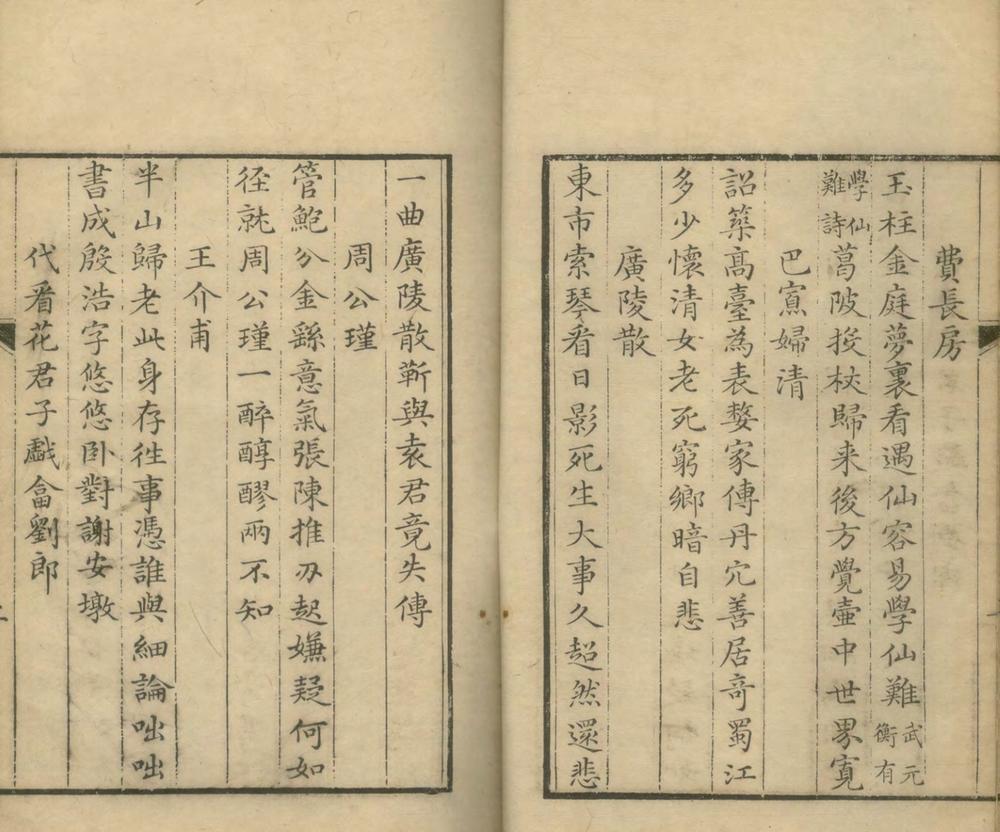 費長房
玉柱金庭夢裏看遇仙容易學仙難武元衡有
學仙難詩葛陂投杖歸来後方覺壷中世界寛
巴寡婦清
詔築高臺為表嫠家傳丹穴善居奇蜀江
多少懷清女老死窮鄉暗自悲
廣陵散
東市索琴看日影死生大事久超然還悲
一曲廣陵散靳與袁君竟失傳
周公瑾
管鮑分金繇意氣張陳推刃起嫌疑何如
徑就周公瑾一醉醇醪兩不知
王介甫
半山歸老此身存徃事憑誰與細論咄咄
書成殷浩字悠悠卧對謝安墩
代看花君子戲畣劉郎